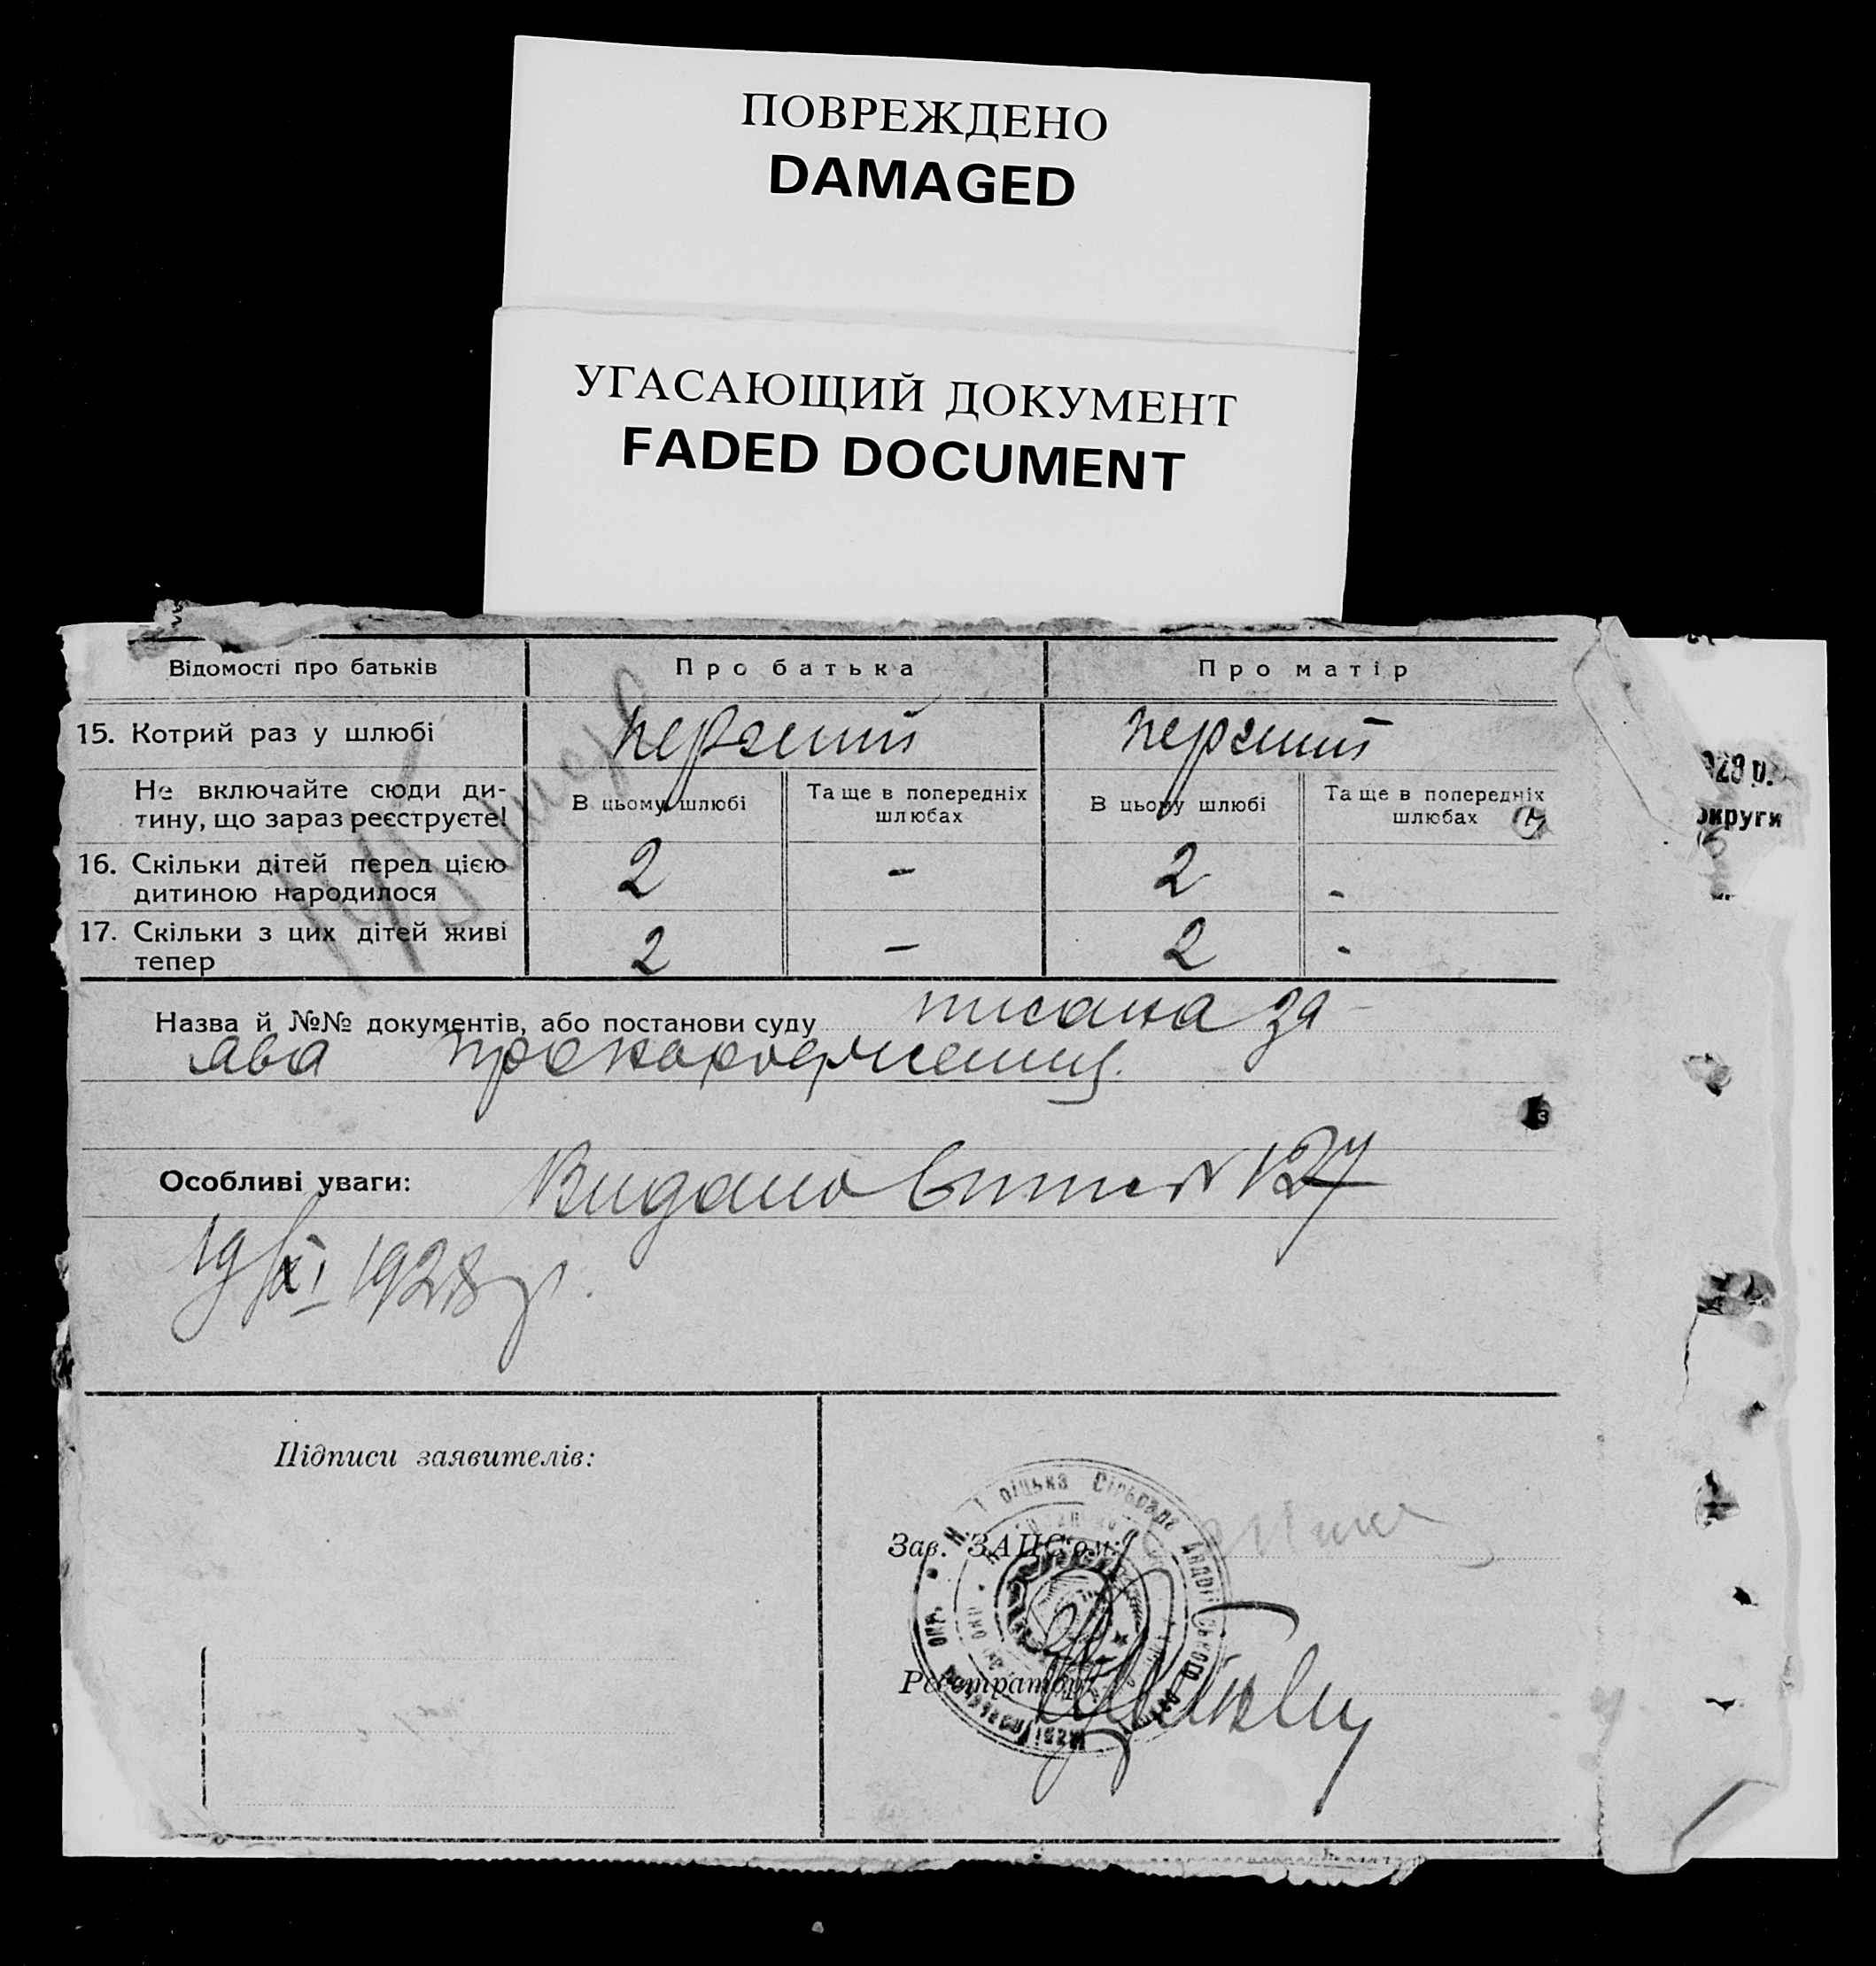 ПОВРЕЖДЕНО
DAMAGED
УГАСАЮЩИЙ ДОКУМЕНТ
FADED DOCUMENT
Відомості про батьків
Про батька
Про матір
15. Котрий раз у шлюбі
перший
перший
Не включайте сюди ди-
тину, що зараз реєструєте!
В цьому шлюбі
Та ще в попередніх
шлюбах
В цьому шлюбі
Та ще в попередніх
шлюбах
16. Скільки дітей перед цією
дитиною народилося
2
-
2
-
17. Скільки з цих дітей живі
тепер
2
-
2
-
Назва й №№ документів, або постанови суду
писана за-
ява про народження.
Особливі уваги:
Видано N 127
19/XI 1928 р.
Підписи заявителів:
Зав. ЗАПС'ом:
Реєстратор
Сільрада
928 р.
округи